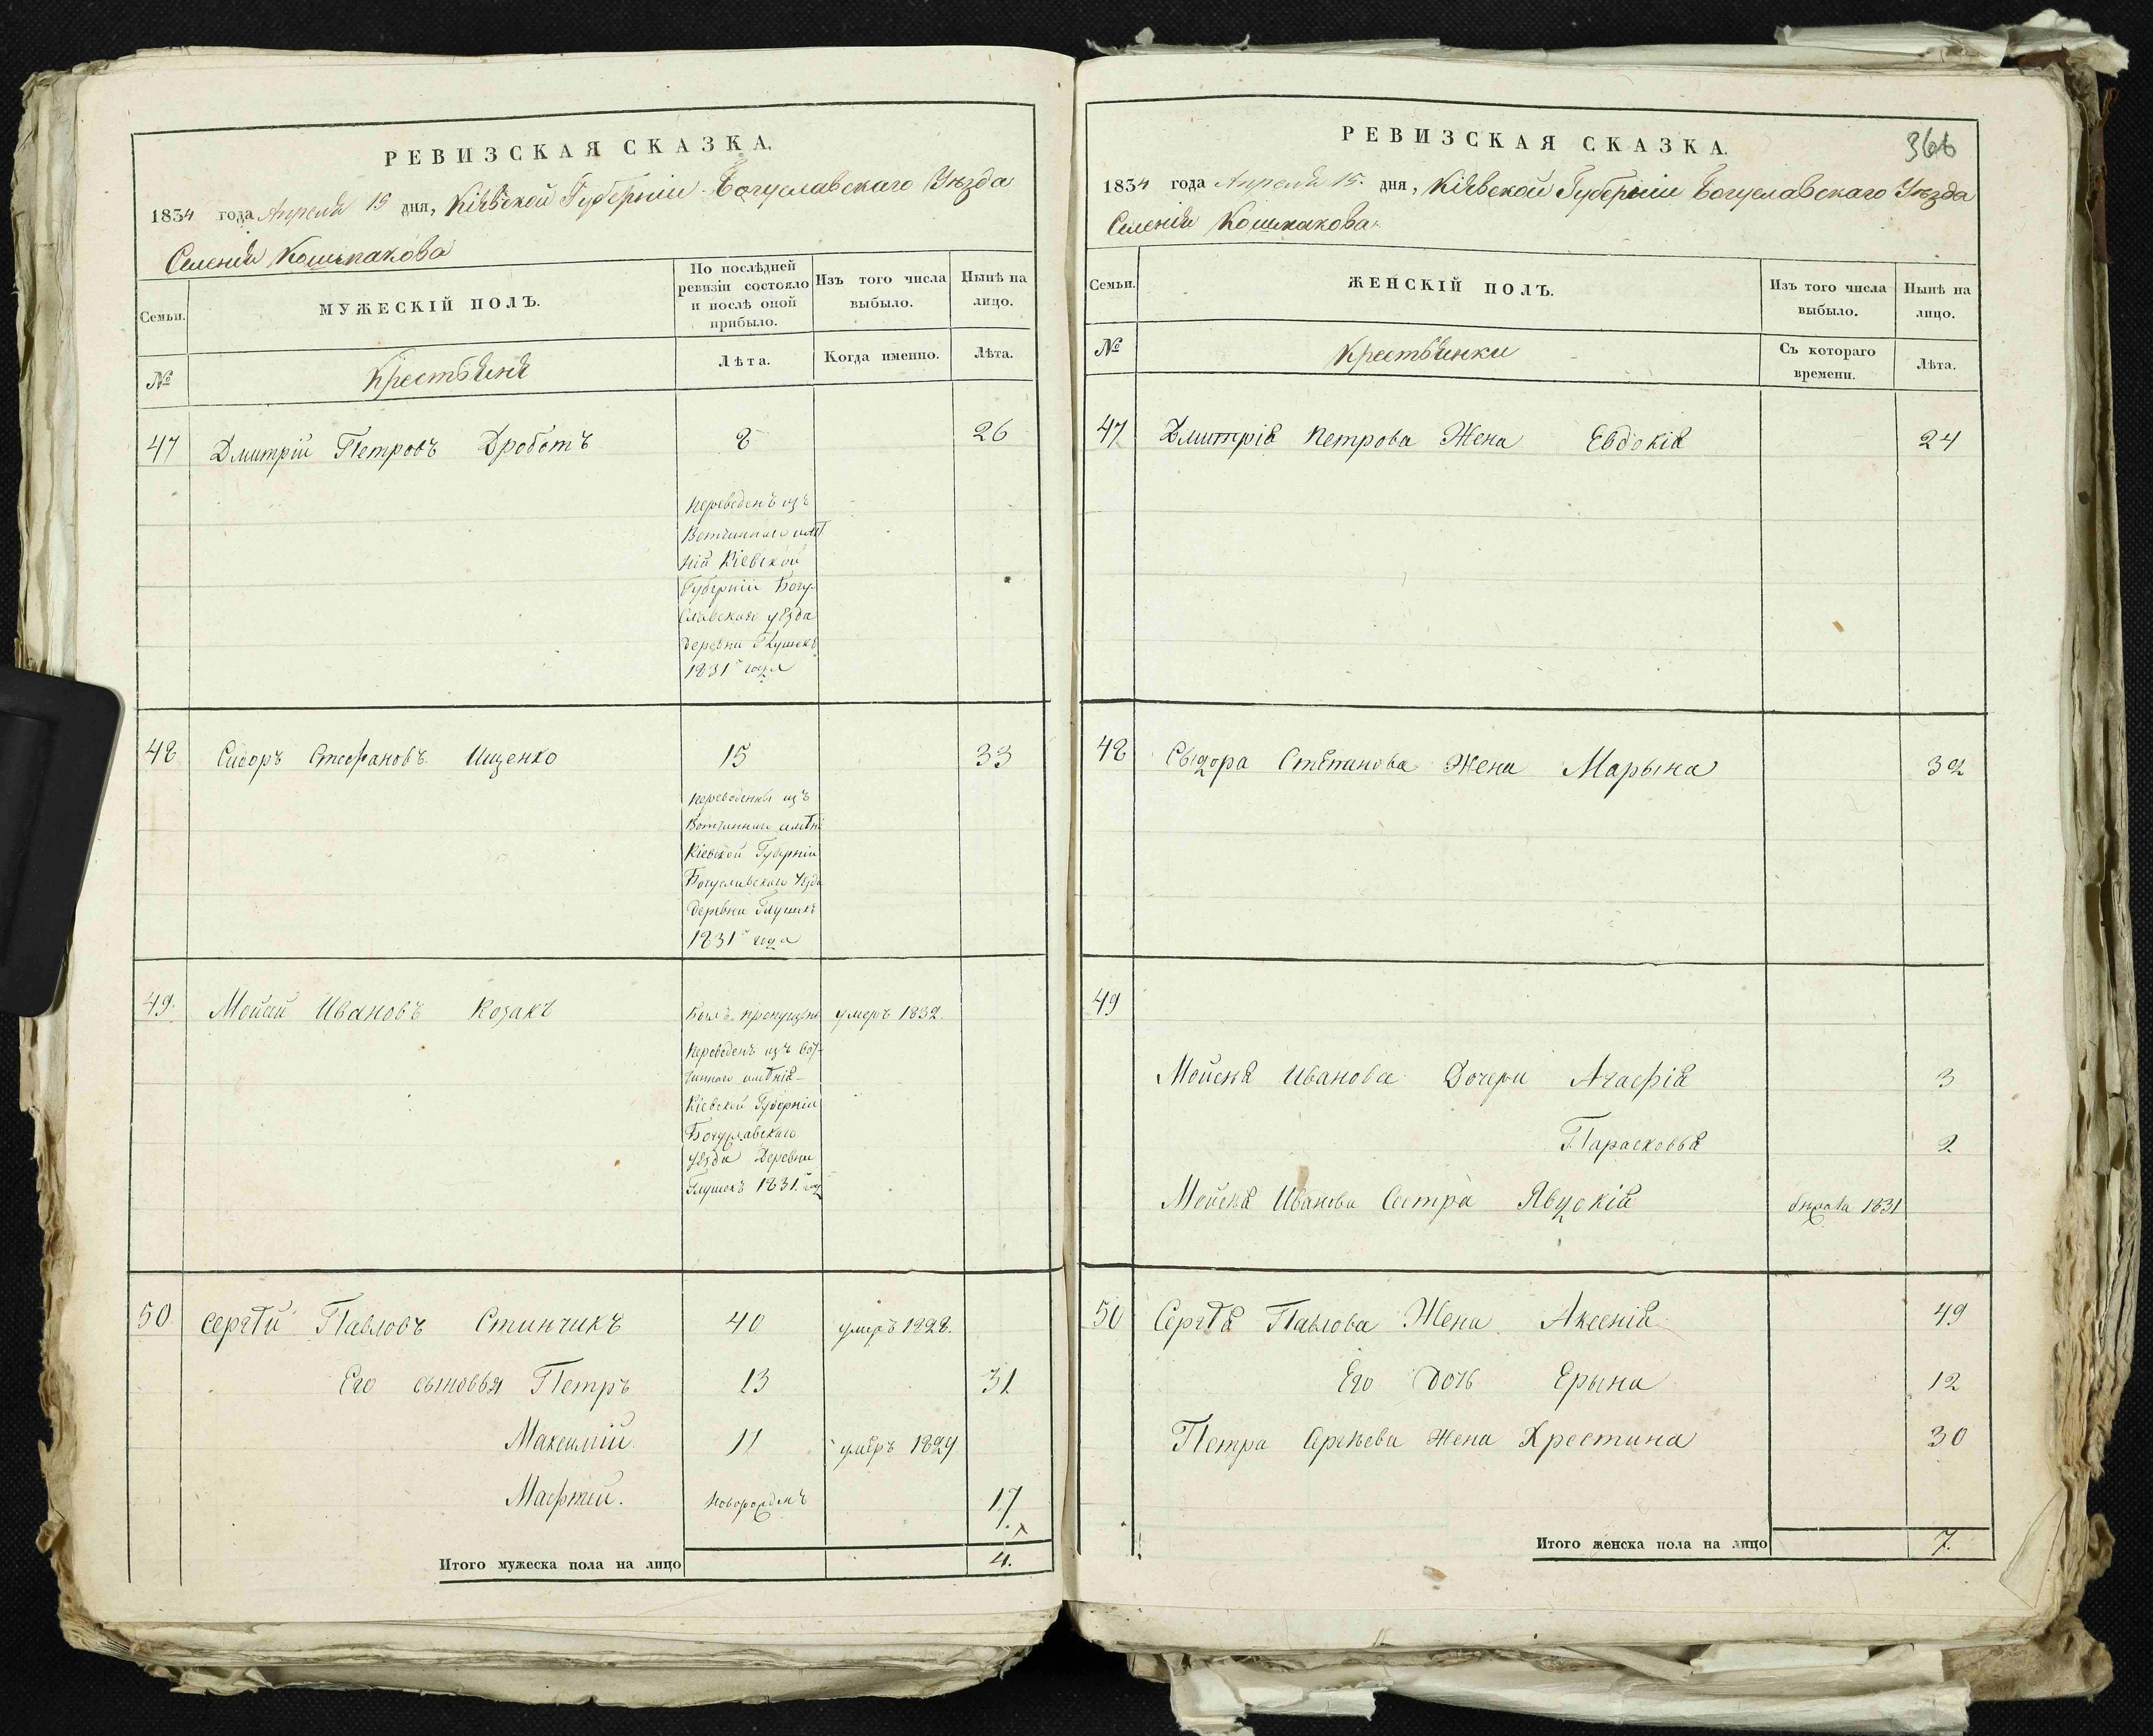 РЕВИЗСКАЯ СКАЗКА.
1834 года Апреля 15 дня, Кіевской Губерніи Богуславскаго Уѣзда
Селенія Кошмакова
Семьи.
МУЖЕСКІЙ ПОЛЪ.
По послѣдней ревизіи состояло и послѣ оной прибыло.
Изъ того числа выбыло.
Нынѣ на лицо.
№
Крестьяне
Лѣта.
Когда именно.
Лѣта.
47 Дмитрій Петровъ Дроботъ 8 26
Переведенъ изъ
Вотчиннаго имѣ
нія Кіевской
Губерніи Богу-
славскаго уѣзда
деревни Глушекъ
1831 года
48 Сидоръ Стефановъ Ищенко 15 33
Переведенны изъ
Вотчиннаго имѣнія
Кіевской Губерніи
Богуславскаго Уѣзда
Деревни Глушекъ
1831 года
49. Мойсей Ивановъ Козакъ Былъ пропущенъ умеръ 1832.
Переведенъ изъ вот-
чиннаго имѣнія
Кіевской Губерніи
Богуславскаго
уѣзда Деревни
Глушекъ 1831. год
50. Сергѣй Павловъ Стинчикъ 40 умеръ 1828.
Его сыновья Петръ 13 31
Максимій 11 умеръ 1829
Мафтей. новорожденъ 17
Итого мужеска пола на лицо 4.
РЕВИЗСКАЯ СКАЗКА.
366
1834 года Апреля 15. дня, Кіевской Губерніи Богуславскаго Уѣзда
Селенія Кошмакова
Семьи.
ЖЕНСКІЙ ПОЛЪ.
Изъ того числа выбыло.
Нынѣ на лицо.
№
Крестьянки
Съ котораго времени.
Лѣта.
47 Дмитрія Петрова Жена Евдокія 24
48 Сыдора Степанова Жена Марына 32
49
Мойсея Иванова Дочери Агафія 3
Парасковья 2
Мойсея Иванова Сестра Явдокія 1831
50 Сергѣя Павлова Жена Аксенія 49
Его Дочь Ерына 12
Петра Сергѣева жена Хрестина 30
Итого женска пола на лицо 7.